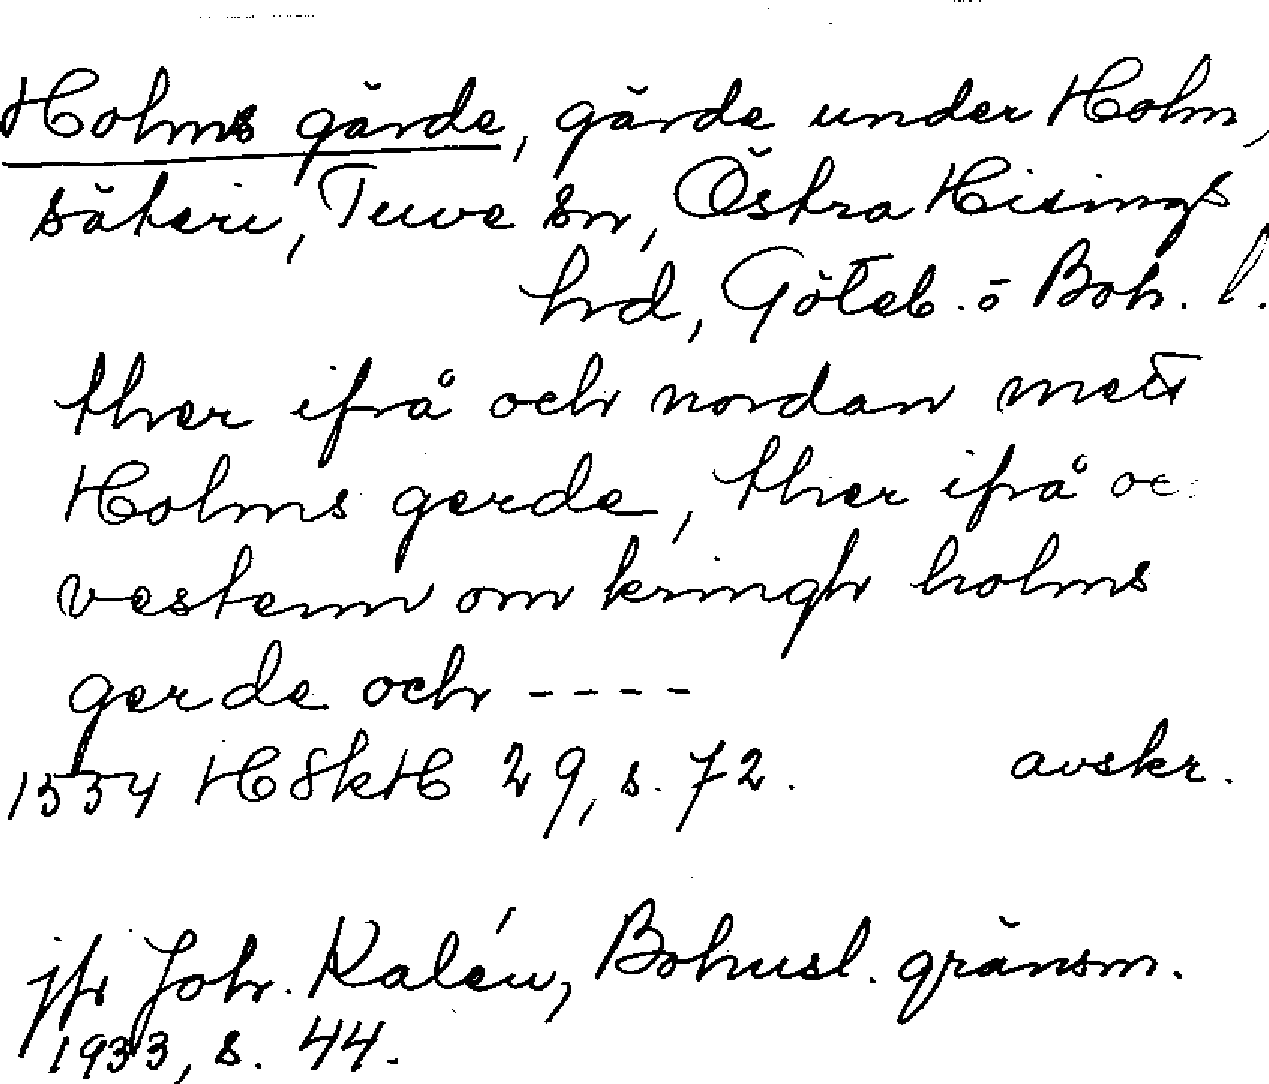 Holms gärde, gärde under Holm,
säteri, Tuve sn, Östra Hisings
hd, Göteb. o Boh. l.
ther ifrå och nordan mett
Holms gerde, ther ifrå oc
vestenn om kringh holms
gerde och ----
1554 HSkH 29, s. 72. avskr.
jfr Joh. Kalén, Bohusl. gränsm.
1933, s. 44.